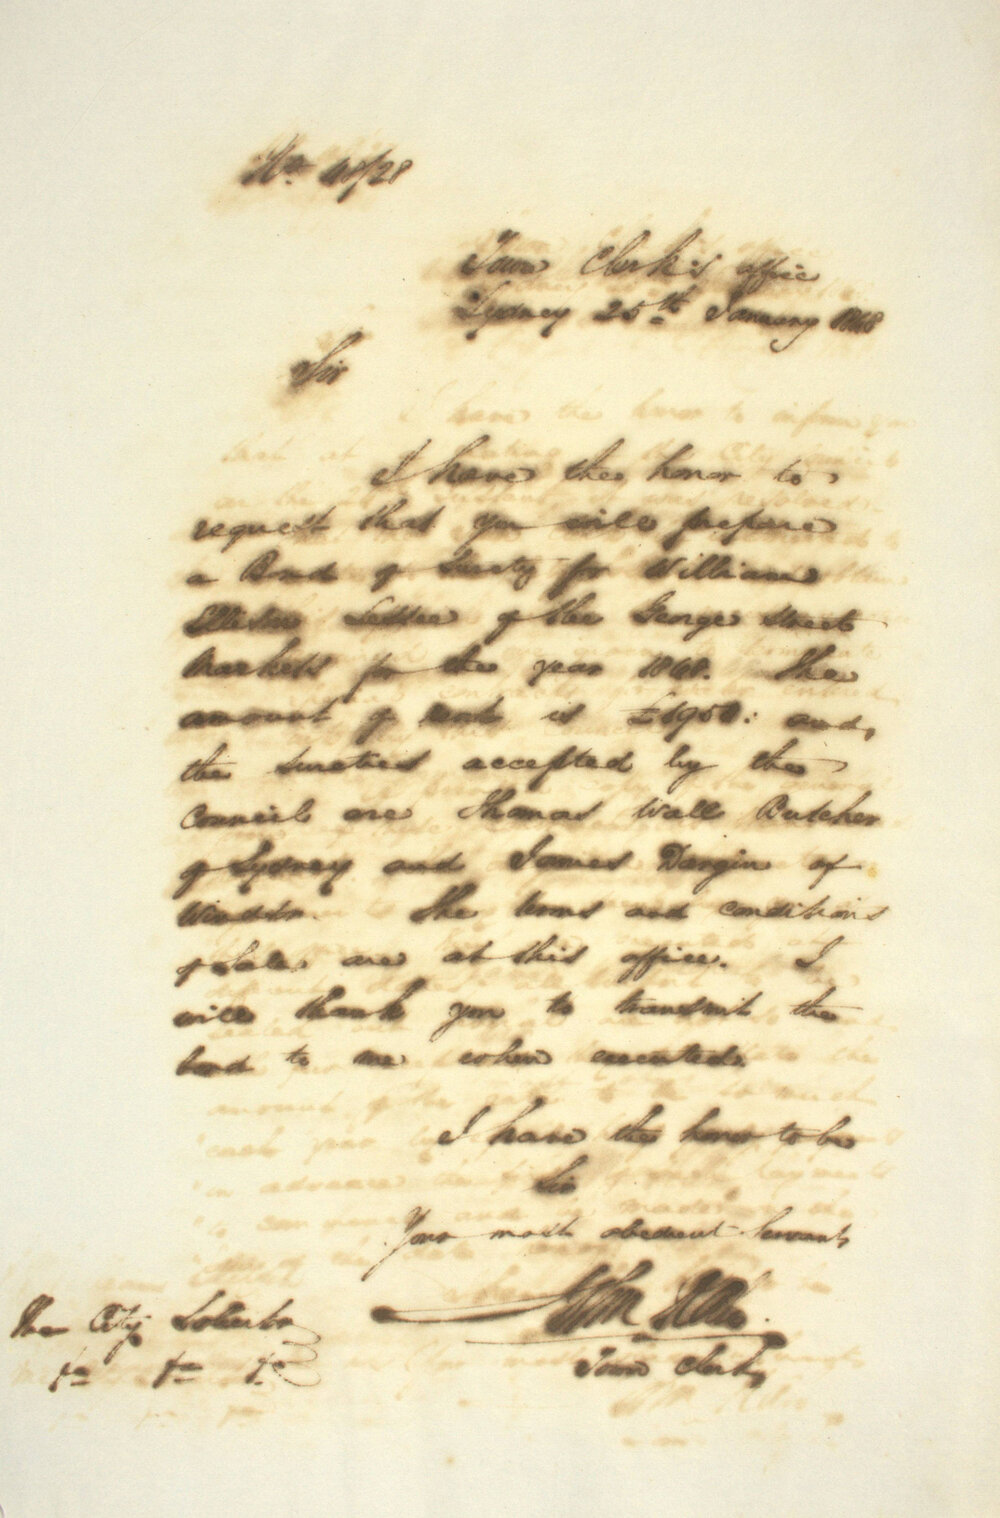 No. 48/28
Town Clerk's office
Sydney 25th January 1848
Sir
I have the honor to
request that you will prepare
a Bond of Surety for William
Elliston Lessee of the George Street
Markets for the year 1848. The
amount of rent is £1950: and
the sureties accepted by the
Council are Thomas Wall Butcher
of Sydney and James Dargin of
Windsor. The terms and conditions
of Sale are at this office. I
will thank you to transmit the
bond to me when executed.
I have the honor to be
Sir
Your most obedient Servant
Town Clerk
The City Solicitor
&c &c &c